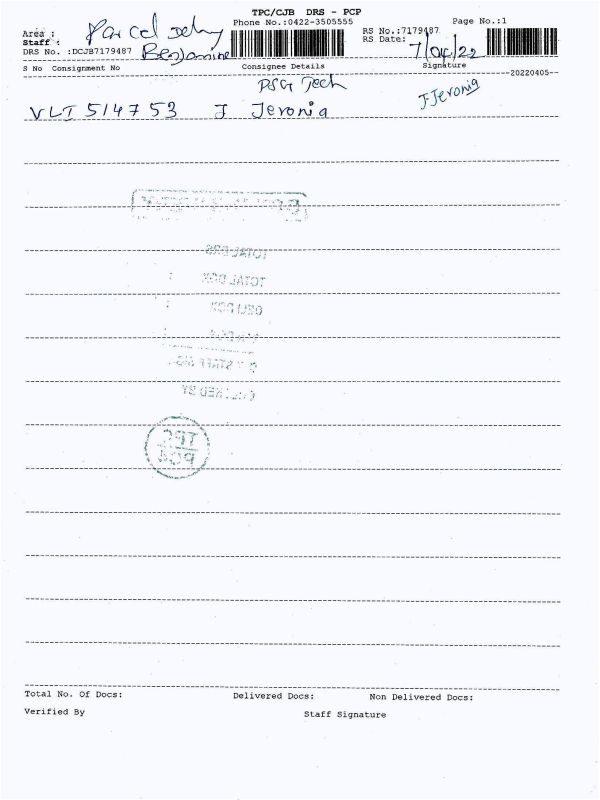 TPC/CJB DRS - PCP
Phone No.:0422-3505555
Page No.:1
Area :
Parcel
Staff :
Benjamine
DRS No. :DCJB7179487
RS No.:7179487
RS Date:
7/04/22
S No Consignment No
Consignee Details
Signature
--20220405--
PSG Tech
J. Jeronia
VLT 514753 J Jeronia
TOTAL DRS
TOTAL DOX :
DELI DOX :
STAFF
BY
TPC
Total No. Of Docs:
Delivered Docs:
Non Delivered Docs:
Verified By
Staff Signature